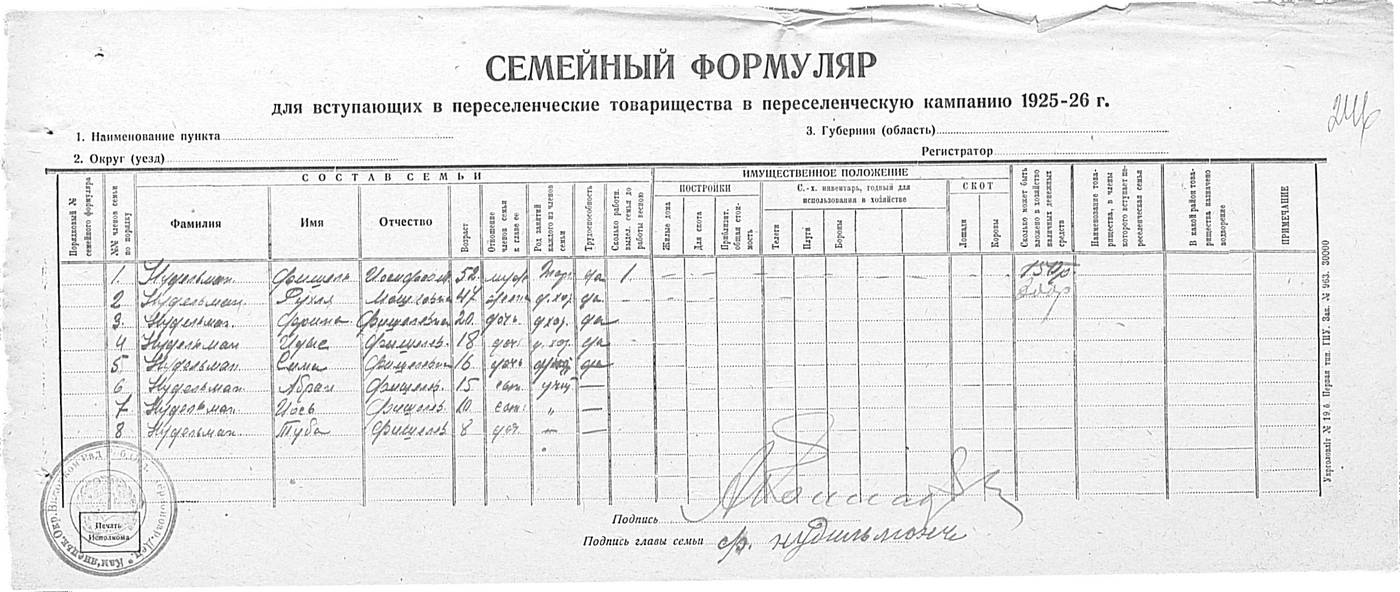 СЕМЕЙНЫЙ ФОРМУЛЯР
для вступающих в переселенческие товарищества в переселенческую кампанию 1925-26 г.
246
1. Наименование пункта
3. Губерния (область)
2. Округ (уезд)
Регистратор
СОСТАВ СЕМЬИ
ИМУЩЕСТВЕННОЕ ПОЛОЖЕНИЕ
ПОСТРОЙКИ
С.-х. инвентарь, годный для использования в хозяйстве
СКОТ
Порядковый № семейного формуляра
№№ членов семьи по порядку
Фамилия
Имя
Отчество
Возраст
Отношение членов семьи к главе ее
Род занятий каждого из членов семьи
Трудоспособность
Сколько работн. выдел. семья до работы весною
Жилые дома
Для скота
Приблизит. общая стоимость
Телеги
Плуги
Бороны
Лошади
Коровы
Сколько может быть вложено в хозяйство наличных денежных средств
Наименование товарищества, в члены которого вступает переселенческая семья
В какой район товарищества назначено водворение
ПРИМЕЧАНИЕ
1. Нудельман Фишель 52 да 1.
2 Нудельман Рухля 47 жена д.хоз. да
3. Нудельман Фишелевна 20. дочь д.хоз. да
4 Нудельман Фишелев. 18 доч. д. хоз. да
5 Нудельман Сима Фишелевна 16 дочь да
6 Нудельман Абрам Фишелев 15 сын. —
7 Нудельман Иось Фишелев 10. сын. „ —
8. Нудельман Туба Фишелев 8 доч. — —
Печать Исполкома
Подпись
Подпись главы семьи ф. нудильмонч
Укрголовліт № 19.6. Первая тип. ГПУ. Зак. № 963. 30000